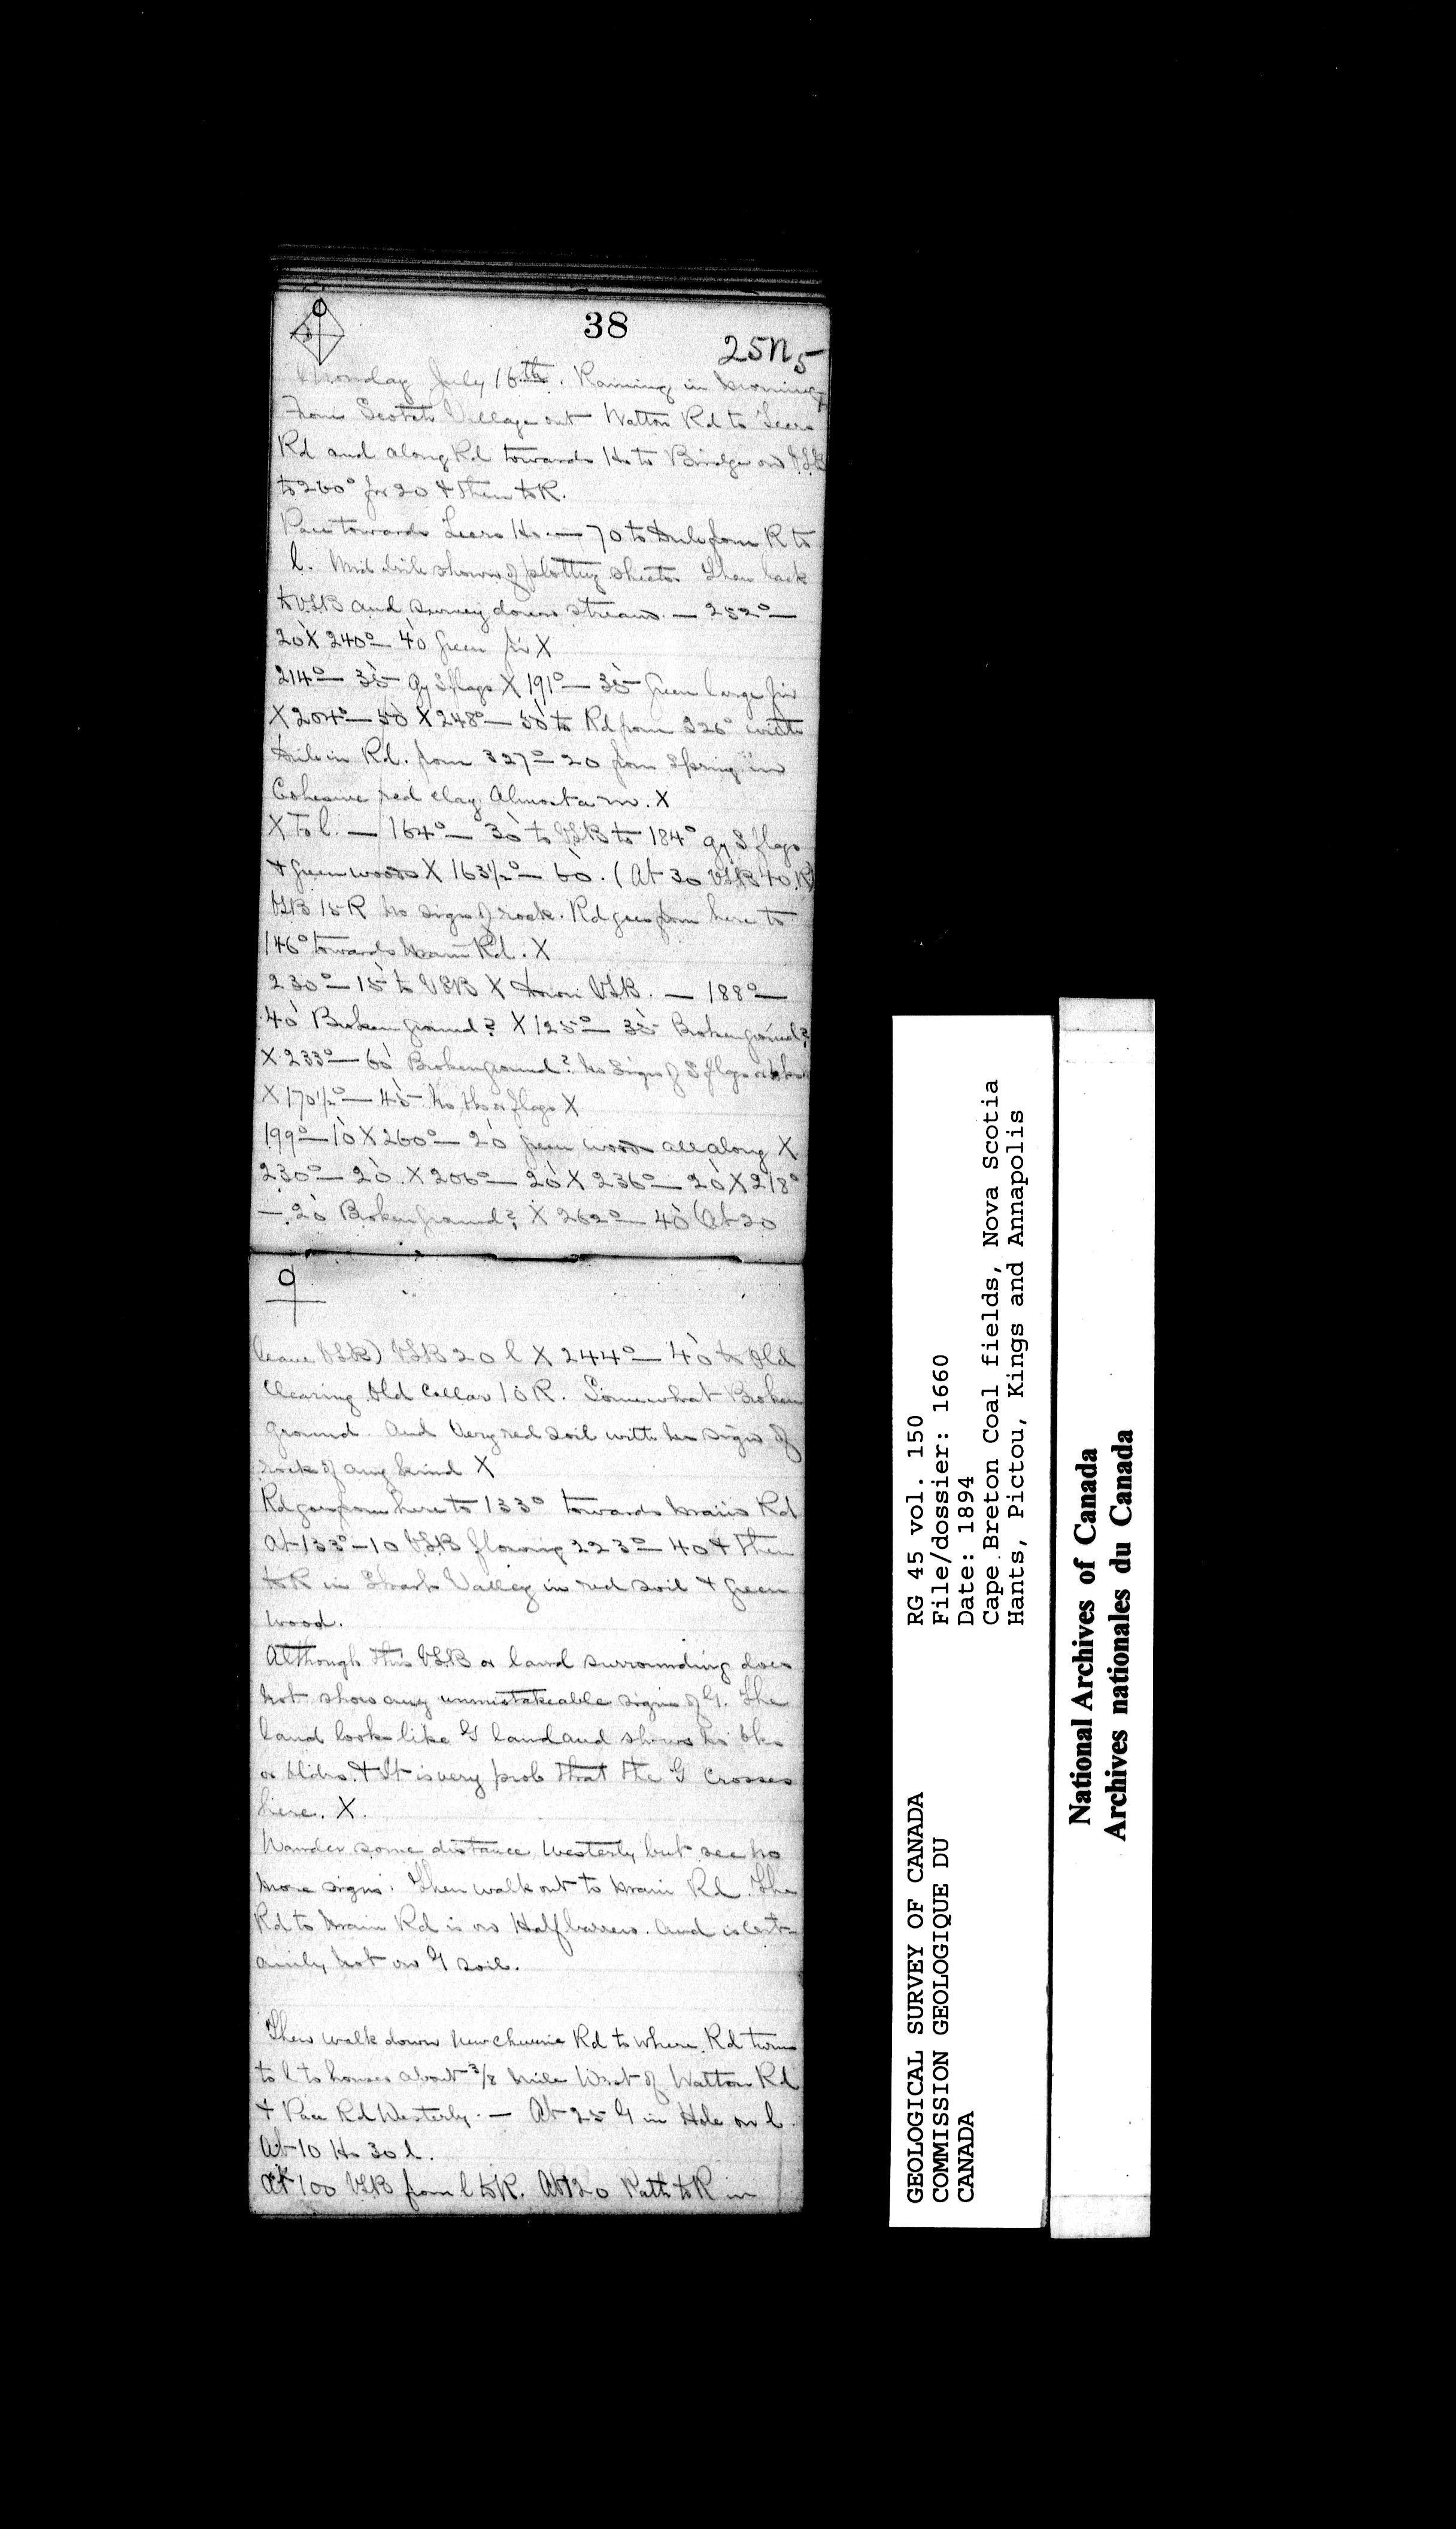 38
25N5
Monday July 16th. Raining in morning
From Scotch Village out Walton Rd to
Rd and along Rd towards Ho to Bridge on VSB
to 260° for 20 & then to R.
Pace towards Ho. — 70 to from R to
l. Mid shown of plotting sheets. Then back
to VSB and survey down stream. — 252° —
20 X 240° — 40 Green fir X
214° — 35 gy S flags X 191° — 35 Green large fir
X 204° — 50 X 248° — 50 to Rd from 326° with
in Rd. from 327° — 20 from Spring in
Cohesive red clay Almost a m. X
X To l. — 164° — 30 to VSB to 184° gy S flags
& green woods X 163½° — 60. (At 30 VSB 40 R)
VSB 15 R No sign of rock. Rd goes from here to
146° towards main Rd. X
230° — 15 to VSB X down VSB. — 188° —
40 Broken ground? X 125° — 35 Broken ground?
X 233° — 60 Broken ground? No Sign of S flags
X 170½° — 45 No flags X
199° — 10 X 260° — 20 green wood all along X
230° — 20 X 206° — 20 X 236° — 20 X 218°
— 20 Broken ground? X 262° — 40 (At 20
leave VSB) VSB 20 l X 244° — 40 to Old
Clearing Old Cellar 10 R. Somewhat Broken
ground. And Very red soil with no sign of
rock of any kind X
Rd goes from here to 133° towards main Rd
At 133° — 10 VSB flowing 223° — 40 & then
to R in Sharp Valley in red soil & green
wood.
Although this VSB or land surrounding does
not show any unmistakeable signs of G. The
land looks like G land and shows no bks
or bldrs. & It is very prob that the G Crosses
here. X.
Wander some distance Westerly but see no
more signs. Then walk out to main Rd. The
Rd to main Rd is on Half barren. And is cert-
ainly not on G soil.
Then walk down Rd to where Rd turns
to l to houses about 3/8 mile West of Walton Rd
& Pace Rd Westerly. — At 25 G in Hole on l.
At 10 Ho 30 l.
At 100 VSB from l to R. At 120 Path to R in
GEOLOGICAL SURVEY OF CANADA
COMMISSION GEOLOGIQUE DU
CANADA
RG 45 vol. 150
File/dossier: 1660
Date: 1894
Cape Breton Coal fields, Nova Scotia
Hants, Pictou, Kings and Annapolis
National Archives of Canada
Archives nationales du Canada